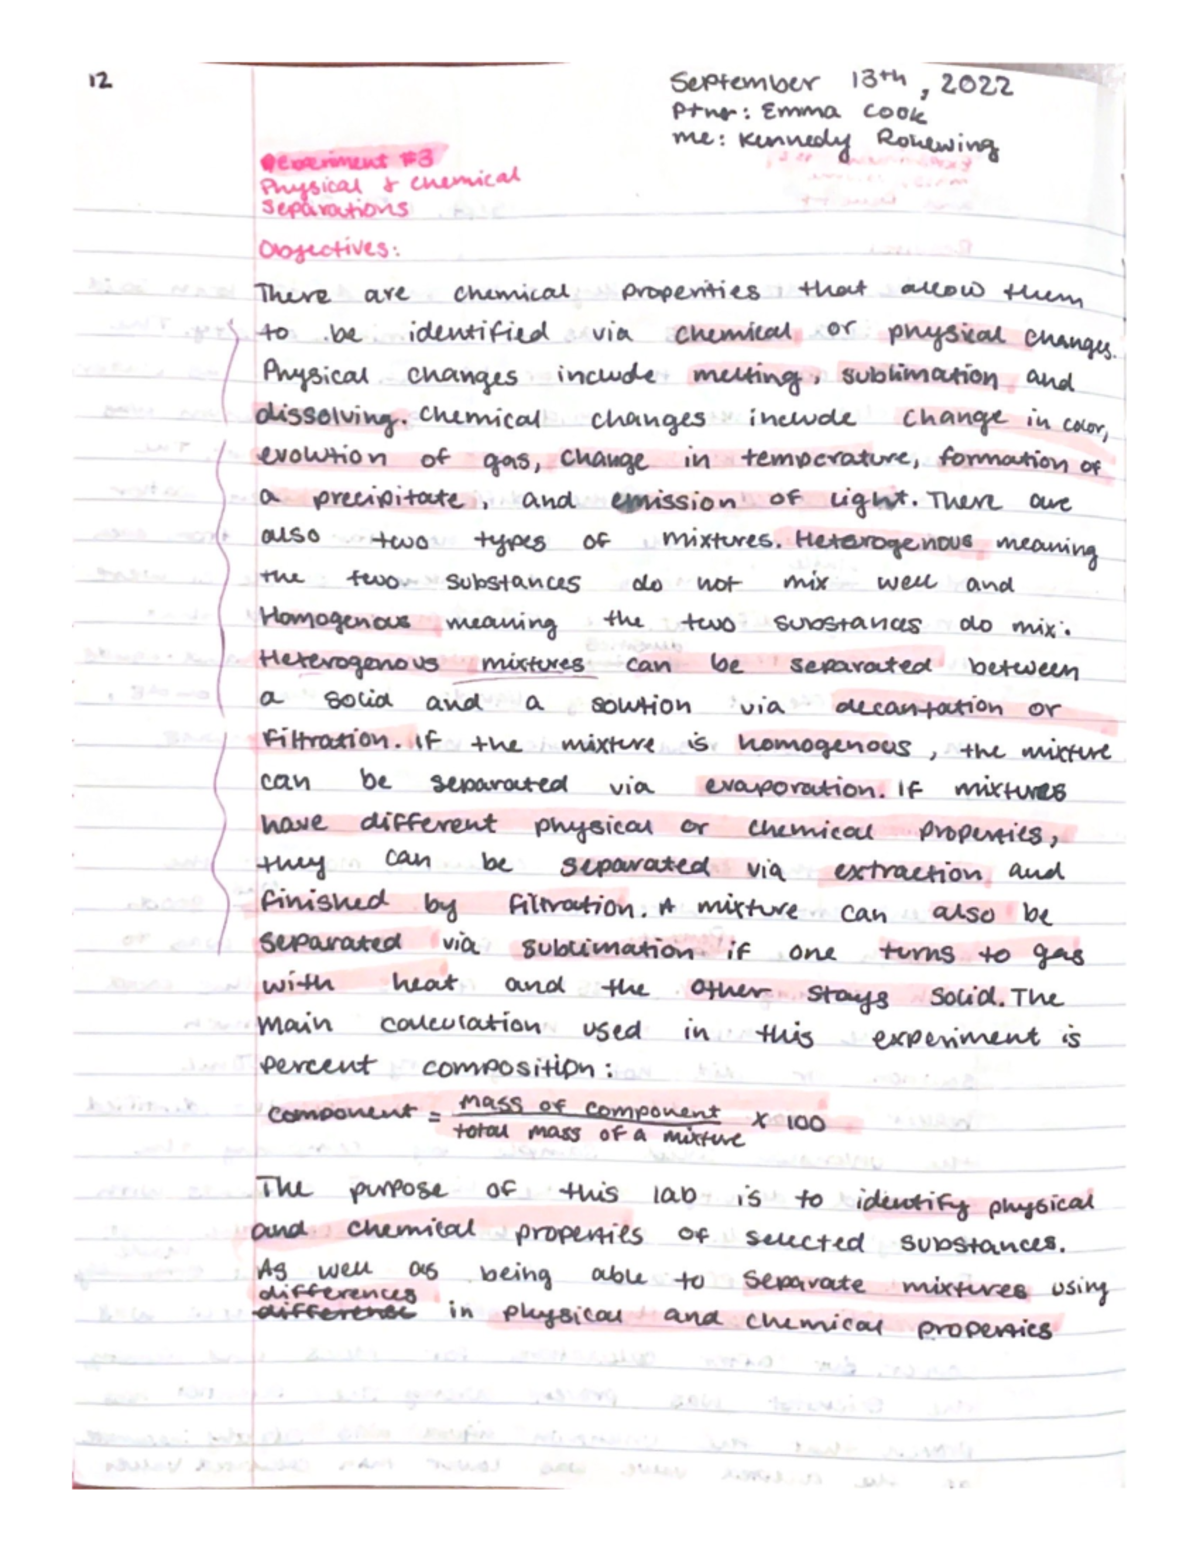 12
September 13th, 2022
Ptnr: Emma Cook
me: Kennedy
Experiment #3
Physical & Chemical
Separations
Objectives:
There are chemical properties that allow them
to be identified via chemical or physical changes.
Physical changes include melting, sublimation and
dissolving. Chemical changes include change in color,
evolution of gas, change in temperature, formation of
a precipitate, and emission of light. There are
also two types of mixtures. Heterogenous meaning
the two substances do not mix well and
Homogenous meaning the two substances do mix.
Heterogenous mixtures can be separated between
a solid and a solution via decantation or
filtration. If the mixture is homogenous, the mixture
can be separated via evaporation. If mixtures
have different physical or chemical properties,
they can be separated via extraction and
finished by filtration. A mixture can also be
separated via sublimation if one turns to gas
with heat and the other stays solid. The
main calculation used in this experiment is
percent composition:
component = mass of component x 100
total mass of a mixture
The purpose of this lab is to identify physical
and chemical properties of selected substances.
As well as being able to separate mixtures using
differences
difference in physical and chemical properties